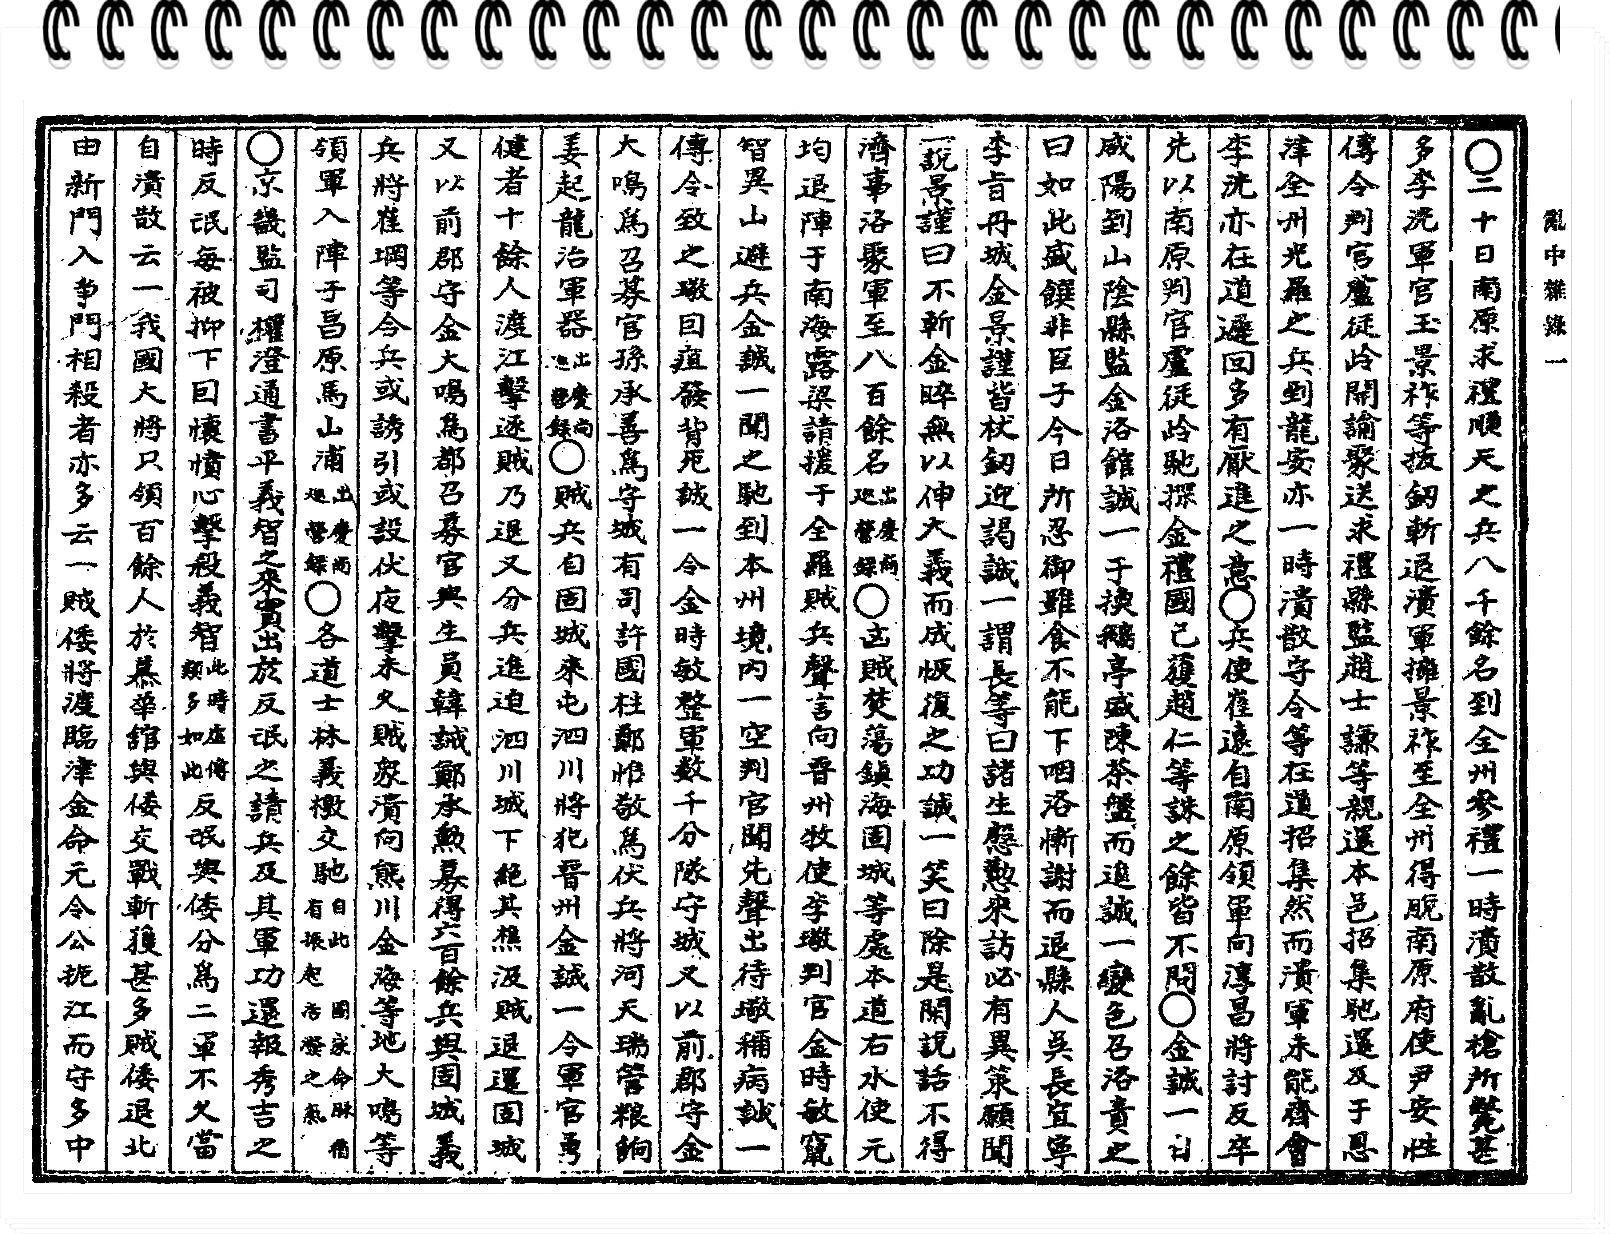 亂中雜錄一
〇二十日南原求禮順天之兵八千餘名到全州參禮一時潰散亂槍所斃甚
多李洸軍官玉景祚等拔劒斬退潰軍擁景祚至全州得脫南原府使尹安性
傳令判官盧從岭開諭聚送求禮縣監趙士謙等親還本邑招集馳還及于恩
津全州光羅之兵到龍安亦一時潰散守令等在道招集然而潰軍未能齊會
李洸亦在道遲回多有厭進之意〇兵使崔遠自南原領軍向淳昌將討反卒
先以南原判官盧從岭馳探金禮國已獲趙仁等誅之餘皆不問〇金誠一自
咸陽到山陰縣監金洛館誠一于換鵝亭盛陳茶盤而進誠一變色召洛責之
曰如此盛饌非臣子今日所忍御雖食不能下咽洛慚謝而退縣人吳長宜寧
李旨丹城金景謹皆杖劒迎謁誠一謂長等曰諸生慇懃來訪必有異策願聞
一說景謹曰不斬金睟無以伸大義而成恢復之功誠一笑曰除是閑說話不得
濟事洛聚軍至八百餘名出慶尙巡營錄〇固賊焚蕩鎭海固城等處本道右水使元
均退陣于南海露梁請援于全羅賊兵聲言向晋州牧使李璥判官金時敏竄
智異山避兵金誠一聞之馳到本州境內一空判官聞先聲出待璥稱病誠一
傳令致之璥曰疽發背死誠一令金時敏整軍数千分隊守城又以前郡守金
大鳴爲召募官孫承善爲守城有司許國柱鄭惟敬爲伏兵將河天瑞管粮餉
姜起龍治軍器出慶尙巡營錄〇賊兵自固城來屯泗川將犯晋州金誠一令軍官勇
健者十餘人渡江擊逐賊乃退又分兵進迫泗川城下絕其樵汲賊退還固城
又以前郡守金大鳴爲都召募官與生員韓誡鄭承勲募得六百餘兵與固城義
兵將崔堈等令兵或誘引或設伏夜擊未久賊衆潰向熊川金海等地大鳴等
領軍入陣于昌原馬山浦出慶尙巡營錄〇各道士林義檄交馳自此有振起國家命脉稍活發之氣
〇京畿監司權澄通書平義智之來實出於反氓之請兵及其軍功還報秀吉之
時反氓每被抑下回懷憤心擊殺義智此時虛傳類多如此反氓與倭分爲二軍不久當
自潰散云一我國大將只領百餘人於慕華舘與倭交戰斬獲甚多賊倭退北
由新門入爭門相殺者亦多云一賊倭將渡臨津金命元令公扼江而守多中